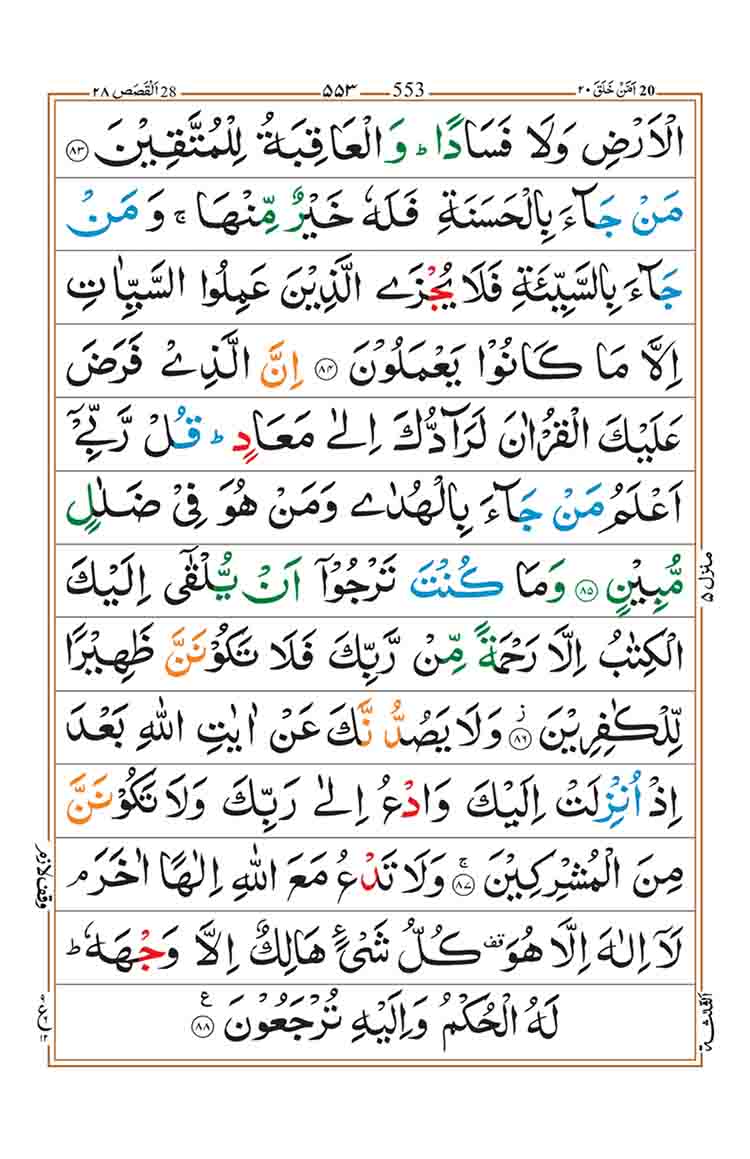 ٢٠ اَمَّنْ خَلَقَ 20
553 ٥٥٣
28 اَلْقَصَص ٢٨
الْاَرْضِ وَلَا فَسَادًا ؕ وَالْعَاقِبَةُ لِلْمُتَّقِيْنَ ﴿٨٣﴾
مَنْ جَآءَ بِالْحَسَنَةِ فَلَهٗ خَيْرٌ مِّنْهَا ۚ وَ مَنْ
جَآءَ بِالسَّيِّئَةِ فَلَا يُجْزَى الَّذِيْنَ عَمِلُوا السَّيِّاٰتِ
اِلَّا مَا كَانُوْا يَعْمَلُوْنَ ﴿٨٤﴾ اِنَّ الَّذِيْ فَرَضَ
عَلَيْكَ الْقُرْاٰنَ لَرَآدُّكَ اِلٰى مَعَادٍ ؕ قُلْ رَّبِّيْۤ
اَعْلَمُ مَنْ جَآءَ بِالْهُدٰى وَمَنْ هُوَ فِيْ ضَلٰلٍ
مُّبِيْنٍ ﴿٨٥﴾ وَمَا كُنْتَ تَرْجُوْۤا اَنْ يُّلْقٰۤى اِلَيْكَ
الْكِتٰبُ اِلَّا رَحْمَةً مِّنْ رَّبِّكَ فَلَا تَكُوْنَنَّ ظَهِيْرًا
لِّلْكٰفِرِيْنَ ؗ ﴿٨٦﴾ وَلَا يَصُدُّنَّكَ عَنْ اٰيٰتِ اللّٰهِ بَعْدَ
اِذْ اُنْزِلَتْ اِلَيْكَ وَادْعُ اِلٰى رَبِّكَ وَلَا تَكُوْنَنَّ
مِنَ الْمُشْرِكِيْنَ ۚ ﴿٨٧﴾ وَلَا تَدْعُ مَعَ اللّٰهِ اِلٰهًا اٰخَرَ ۘ
لَاۤ اِلٰهَ اِلَّا هُوَ قف كُلُّ شَيْءٍ هَالِكٌ اِلَّا وَجْهَهٗ ؕ
لَهُ الْحُكْمُ وَاِلَيْهِ تُرْجَعُوْنَ ﴿٨٨﴾ ع
منزل ٥
وقف لازم
الثلٰثة